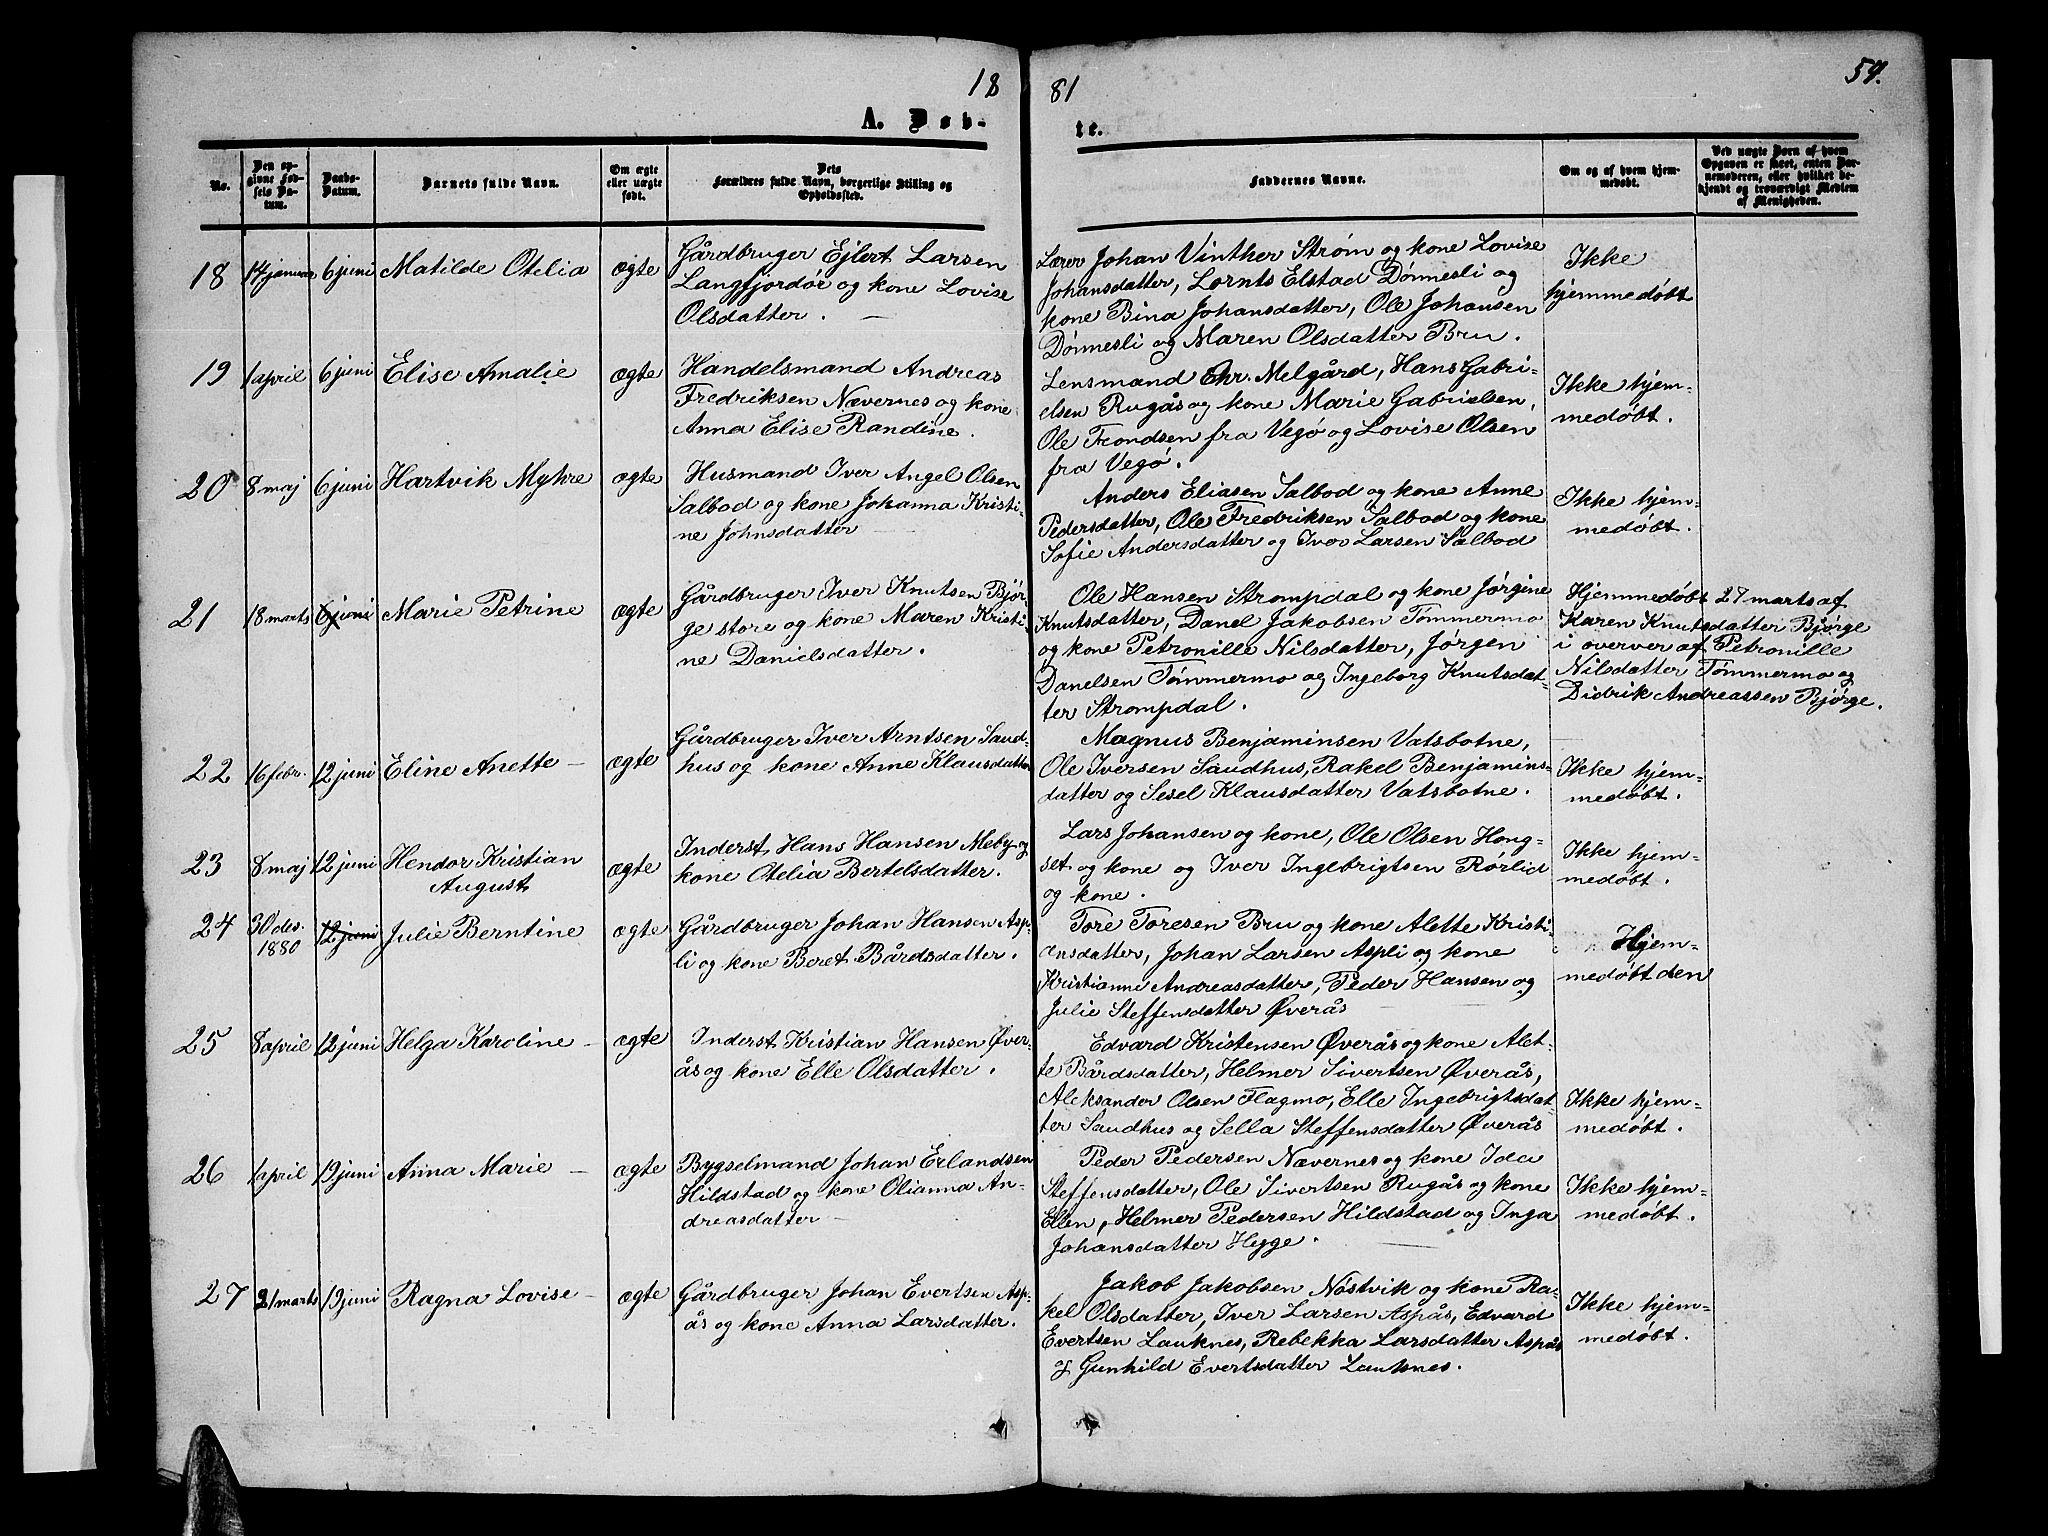 18 81 54.
A. Døb- te.
No.
Den opgivne Fødsels Datum.
Daabs-Datum.
Barnets fulde Navn.
Om ægte eller uægte født.
Dets Forældres fulde Navn, borgerlige Stilling og Opholdssted.
Faddernes Navne.
Om og af hvem hjemmedøbt.
Ved uægte Børn af hvem Opgaven er skeet, enten Barnemoderen, eller hvilket bekjendt og troværdigt Medlem af Menigheden.
18 14 januar 6 juni Matilde Otelia ægte
Gårdbruger Ejlert Larsen
Langfjordør og kone Lovise
Olsdatter. —
Lærer Johan Vinther Strøm og kone Lovise
Johansdatter, Lornts Elstad Dønnesli og
kone Bina Johansdatter, Ole Johansen
Dønnesli og Maren Olsdatter Bru.
Ikke
hjemmedøbt
19 1 april 6 juni Elise Amalie ægte
Handelsmand Andreas
Fredriksen Nævernes og kone
Anna Elise Randine.
Lensmand Chr. Melgård, Hans Gabri-
elsen Rugås og kone Marie Gabrielsen,
Ole Trondsen fra Vegø og Lovise Olsen
fra Vegø.
Ikke hjem-
medøbt.
20 8 maj 6 juni Hartvik Myhre ægte
Husmand Iver Angel Olsen
Salbod og kone Johanna Kristi-
ne Johnsdatter —
Anders Eliasen Salbod og kone Anne
Pedersdatter, Ole Fredriksen Salbod og kone
Sofie Andersdatter og Iver Larsen Salbod
Ikke hjem-
medøbt.
21 18 marts 6 juni Marie Petrine ægte
Gårdbruger Iver Knutsen Bjør-
ge store og kone Maren Kristi-
ne Danielsdatter.
Ole Hansen Strompdal og kone Jørgine
Knutsdatter, Danel Jakobsen Tømmermo
og kone Petronille Nilsdatter, Jørgen
Danelsen Tømmermo og Ingeborg Knutsdat-
ter Strompdal.
Hjemmedøbt 27 marts af
Karen Knutsdatter Bjørge
i overver af Petronille
Nilsdatter Tømmermo og
Didrik Andreassen Bjørge.
22 16 febr. 12 juni Eline Anette — ægte
Gårdbruger Iver Arntsen Saud-
hus og kone Anne Klausdatter
Magnus Benjaminsen Vatsbotne,
Ole Iversen Saudhus, Rakel Benjamins-
datter og Sesel Klausdatter Vatsbotne.
Ikke hjem-
medøbt.
23 8 maj 12 juni Hendor Kristian
August
ægte
Inderst Hans Hansen Meby og
kone Otelia Bertelsdatter.
Lars Johansen og kone, Ole Olsen Hong-
set og kone og Iver Ingebrigtsen Rørlid
og kone.
Ikke hjem-
medøbt.
24 30 des. 1880 12 juni Julie Berntine ægte
Gårdbruger Johan Hansen Asp-
li og kone Beret Bårdsdatter.
Tore Toresen Bru og kone Alette Kristi-
ansdatter, Johan Larsen Aspli og kone
Kristianne Andreasdatter, Peder Hansen og
Julie Steffensdatter Øverås
Hjem-
medøbt den
25 8 april 12 juni Helga Karoline — ægte
Inderst Kristian Hansen Øver-
ås og kone Elle Olsdatter.
Edvard Kristensen Øverås og kone Alet-
te Bårdsdatter, Helmer Sivertsen Øverås,
Aleksander Olsen Flagmo, Elle Ingebrigtsdat-
ter Saudhus og Sella Steffensdatter Øverås
Ikke hjem-
medøbt.
26 1 april 19 juni Anna Marie — ægte
Bygselmand Johan Erlandsen
Hildstad og kone Olianna An-
dreasdatter —
Peder Pedersen Nævernes og kone Ida
Steffensdatter, Ole Sivertsen Rugås og kone
Ellen, Helmer Pedersen Hildstad og Inga
Johansdatter Hegge.
Ikke hjem-
medøbt.
27 21 marts 19 juni Ragna Lovise — ægte
Gårdbruger Johan Evertsen Asp-
ås og kone Anna Larsdatter.
Jakob Jakobsen Nøstvik og kone Ra-
kel Olsdatter, Iver Larsen Aspås, Edvard
Evertsen Lauknes, Rebekka Larsdatter Aspås
og Gunhild Evertsdatter Lauknes.
Ikke hjem-
medøbt.